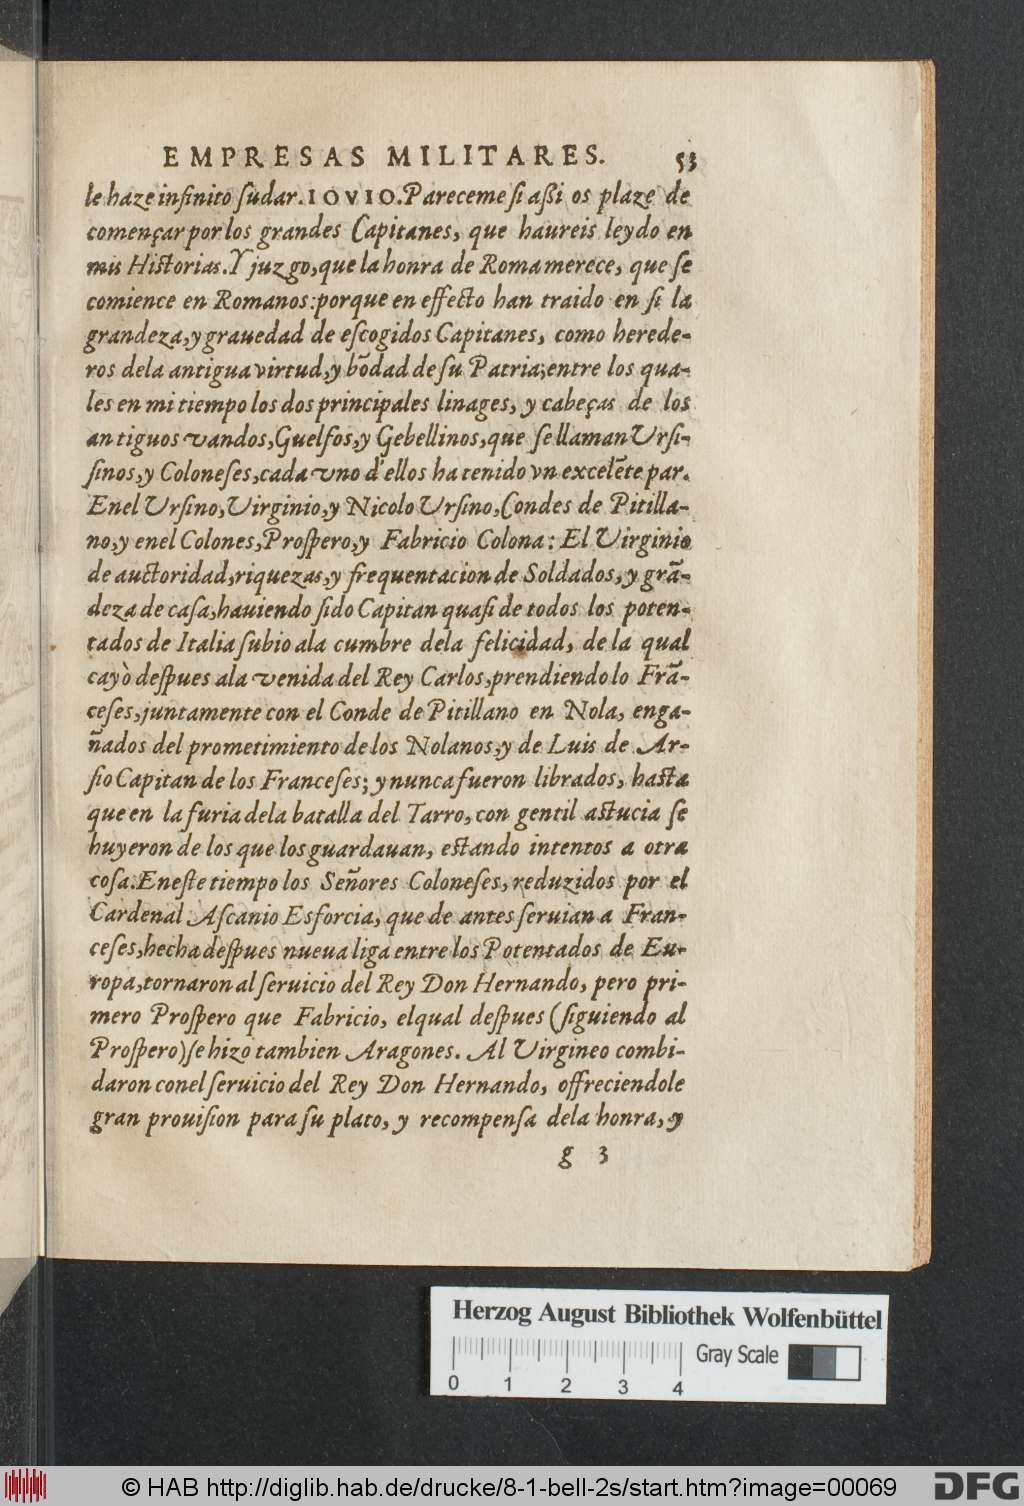 EMPRESAS MILITARES. 53
le haze infinito ſudar. IOVIO. Pareceme ſi aßi os plaze de
començar por los grandes Capitanes, que haureis leydo en
mis Historias. Y juzgo, que la honra de Roma merece, que ſe
comience en Romanos: porque en effecto han traido en ſi la
grandeza, y grauedad de eſcogidos Capitanes, como herede-
ros dela antigua virtud, y bõdad de ſu Patria; entre los qua-
les en mi tiempo los dos principales linages, y cabeças de los
antiguos vandos, Guelfos, y Gebellinos, que ſe llaman Vrſi-
ſinos, y Coloneſes, cada vno d'ellos ha tenido vn excelẽte par.
Enel Vrſino, Virginio, y Nicolo Vrſino, Condes de Pitilla-
no, y enel Colones, Proſpero, y Fabricio Colona: El Virginio
de auctoridad, riquezas, y frequentacion de Soldados, y grã-
deza de caſa, hauiendo ſido Capitan quaſi de todos los poten-
tados de Italia ſubio ala cumbre dela felicidad, de la qual
cayò deſpues ala venida del Rey Carlos, prendiendo lo Frã-
ceſes, juntamente con el Conde de Pitillano en Nola, enga-
ñados del prometimiento de los Nolanos, y de Luis de Ar-
ſio Capitan de los Franceſes; y nunca fueron librados, hasta
que en la furia dela batalla del Tarro, con gentil astucia ſe
huyeron de los que los guardauan, estando intentos a otra
coſa. Eneſte tiempo los Señores Coloneſes, reduzidos por el
Cardenal Aſcanio Esforcia, que de antes ſeruian a Fran-
ceſes, hecha deſpues nueua liga entre los Potentados de Eu-
ropa, tornaron al ſeruicio del Rey Don Hernando, pero pri-
mero Proſpero que Fabricio, elqual deſpues (ſiguiendo al
Proſpero) ſe hizo tambien Aragones. Al Virgineo combi-
daron conel ſeruicio del Rey Don Hernando, offreciendole
gran prouiſion para ſu plato, y recompenſa dela honra, y
g 3
Herzog August Bibliothek Wolfenbüttel
Gray Scale
0 1 2 3 4
© HAB http://diglib.hab.de/drucke/8-1-bell-2s/start.htm?image=00069
DFG